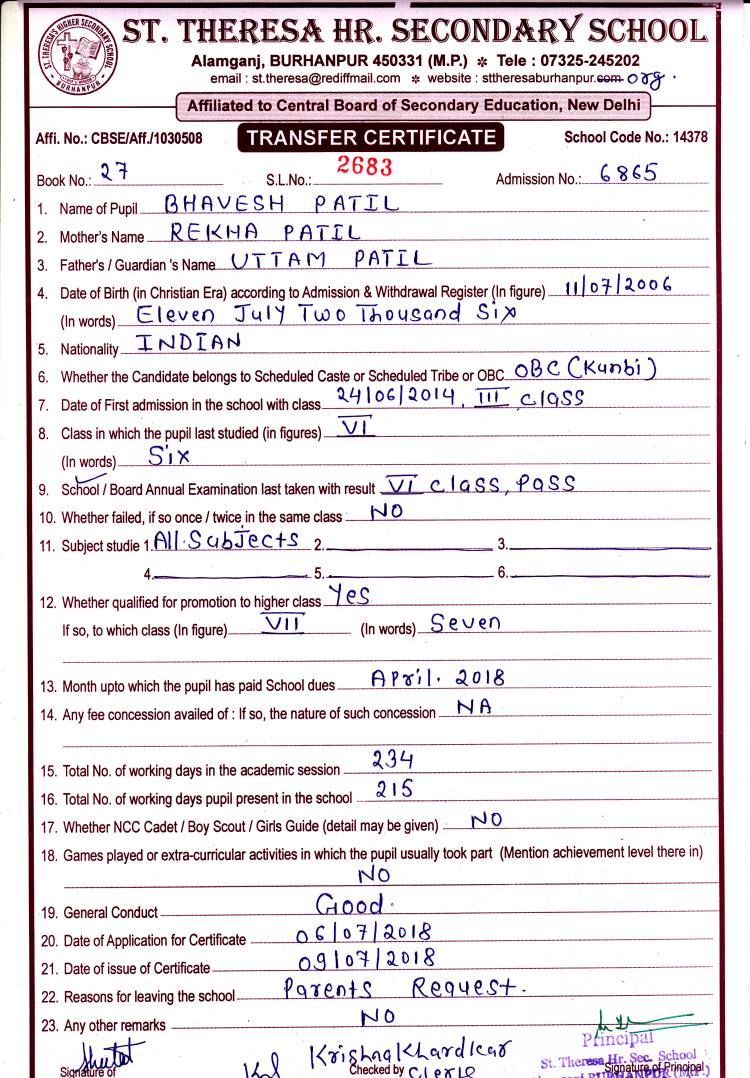 ST. THERESA HR. SECONDARY SCHOOL
Alamganj, BURHANPUR 450331 (M.P.) * Tele : 07325-245202
email : st.theresa@rediffmail.com * website : sttheresaburhanpur.com org.
Affiliated to Central Board of Secondary Education, New Delhi
Affi. No.: CBSE/Aff./1030508 TRANSFER CERTIFICATE School Code No.: 14378
Book No.: 27 S.L.No.: 2683 Admission No.: 6865
1. Name of Pupil BHAVESH PATIL
2. Mother's Name REKHA PATIL
3. Father's / Guardian 's Name UTTAM PATIL
4. Date of Birth (in Christian Era) according to Admission & Withdrawal Register (In figure) 11/07/2006
(In words) Eleven July Two Thousand Six
5. Nationality INDIAN
6. Whether the Candidate belongs to Scheduled Caste or Scheduled Tribe or OBC OBC (Kunbi)
7. Date of First admission in the school with class 24/06/2014, III class
8. Class in which the pupil last studied (in figures) VI
(In words) Six
9. School / Board Annual Examination last taken with result VI class, Pass
10. Whether failed, if so once / twice in the same class NO
11. Subject studie 1. All Subjects 2. 3.
4. 5. 6.
12. Whether qualified for promotion to higher class Yes
If so, to which class (In figure) VII (In words) Seven
13. Month upto which the pupil has paid School dues April. 2018
14. Any fee concession availed of : If so, the nature of such concession NA
15. Total No. of working days in the academic session 234
16. Total No. of working days pupil present in the school 215
17. Whether NCC Cadet / Boy Scout / Girls Guide (detail may be given) NO
18. Games played or extra-curricular activities in which the pupil usually took part (Mention achievement level there in)
NO
19. General Conduct Good.
20. Date of Application for Certificate 06/07/2018
21. Date of issue of Certificate 09/07/2018
22. Reasons for leaving the school Parents Request.
23. Any other remarks NO
Principal
Krishna Khardikar St. Theresa Hr. Sec. School
Signature of Checked by Clerk Signature of Principal
BURHANPUR (M.P.)